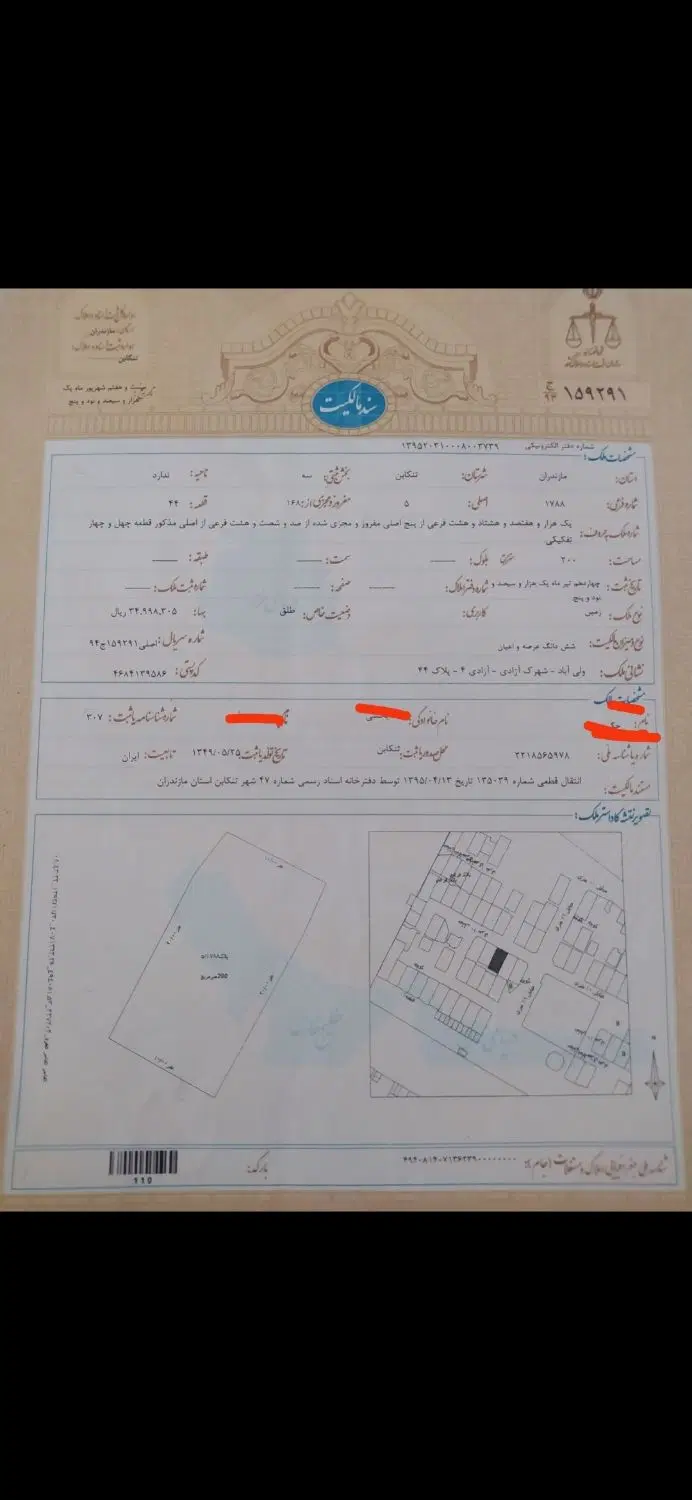 استان: مازندران
اداره ثبت اسناد و املاک:
تنکابن
بیست و هفتم شهریور ماه یک
هزار و سیصد و نود و پنج
سند مالکیت
۱۵۹۲۹۱
ج
۹۴
مشخصات ملک:
شماره دفتر الکترونیکی ۱۳۹۵۲۰۳۱۰۰۰۸۰۰۳۷۳۹
استان: مازندران شهرستان: تنکابن بخش ثبتی: سه ناحیه: ندارد
شماره فرعی: ۱۷۸۸ اصلی: ۵ مفروز و مجزی از: ۱۶۸۰ قطعه: ۴۴
شماره ملک به حروف: یک هزار و هفتصد و هشتاد و هشت فرعی از پنج اصلی مفروز و مجزی شده از صد و شصت و هشت فرعی از اصلی مذکور قطعه چهل و چهار
تفکیکی
مساحت: ۲۰۰ مترمربع بلوک: —— سمت: —— طبقه: ——
تاریخ ثبت: چهاردهم تیر ماه یک هزار و سیصد و شماره دفتر املاک: —— صفحه: —— شماره ثبت ملک: ——
نود و پنج
نوع ملک: زمین کاربری: وضعیت خاص: طلق بها: ۳۴,۹۹۸,۳۰۵ ریال
نوع و میزان مالکیت: شش دانگ عرصه و اعیان شماره سریال: اصلی ۱۵۹۲۹۱ ج ۹۴
نشانی ملک: ولی آباد - شهرک آزادی - آزادی ۴ - پلاک ۴۴ کد پستی: ۴۶۸۴۱۳۹۵۸۶
مشخصات مالک
نام: نام خانوادگی: شماره شناسنامه یا ثبت: ۳۰۷
شماره یا شناسه ملی: ۲۲۱۸۵۶۵۹۷۸ محل صدور یا ثبت: تنکابن تاریخ تولد یا ثبت: ۱۳۴۹/۰۵/۲۵ تابعیت: ایران
مستند مالکیت: انتقال قطعی شماره ۱۳۵۰۳۹ تاریخ ۱۳۹۵/۰۴/۱۳ توسط دفترخانه اسناد رسمی شماره ۴۷ شهر تنکابن استان مازندران
تصویر نقشه کاداستر ملک:
پلاک ۵/۱۷۸۸
200 مترمربع
شناسه ملی جغرافیایی املاک و مستغلات (جام):
بارکد:
110